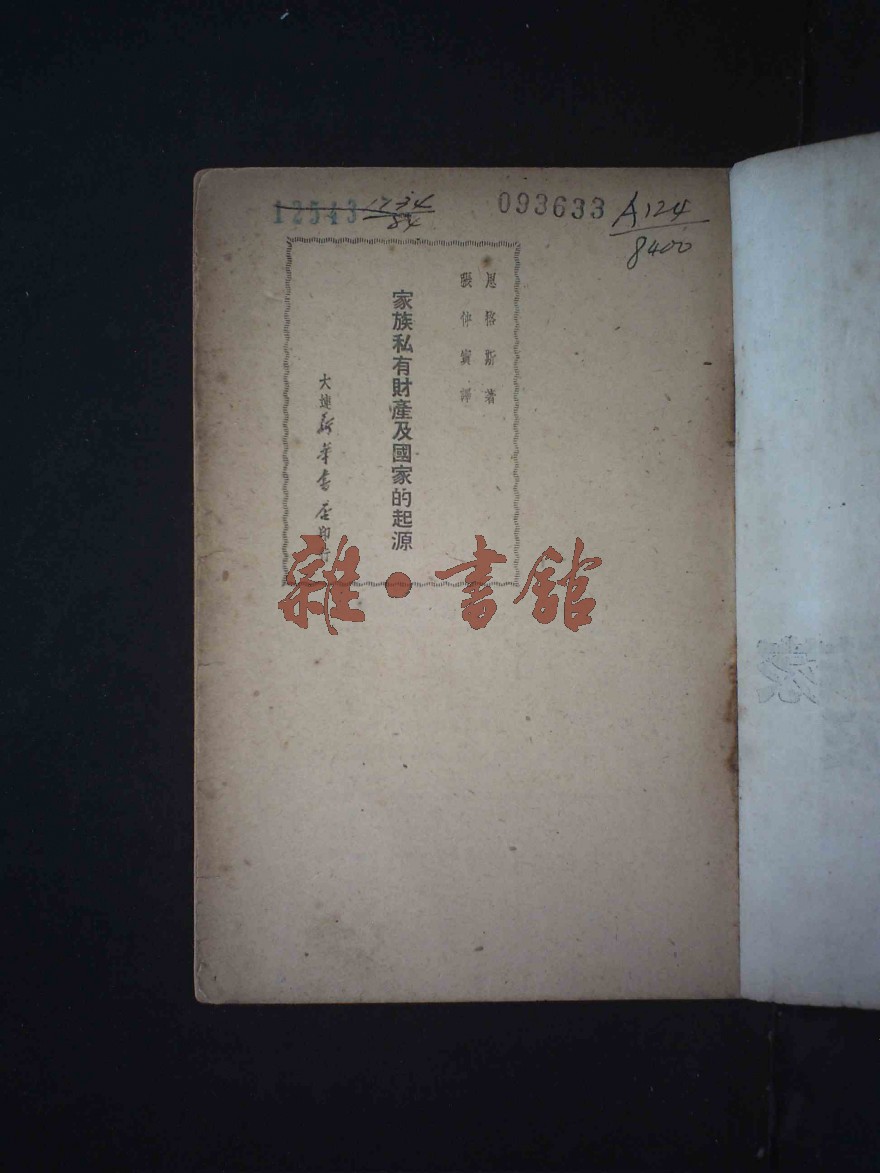 12543
1234
84
093633
A124
8400
恩格斯著
張仲實譯
家族私有財產及國家的起源
大連新華書店印行
雜·書館